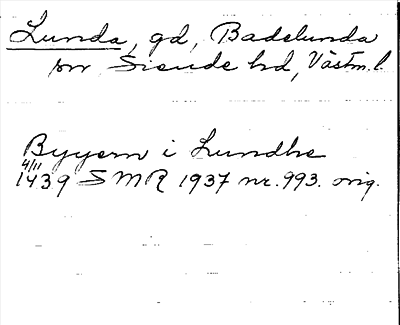 Lunda, gd, Badelunda
sn Siende hd, Västm.l.
Byyern i Lundhe
4/11
1439 SMR 1937 nr. 993. orig.